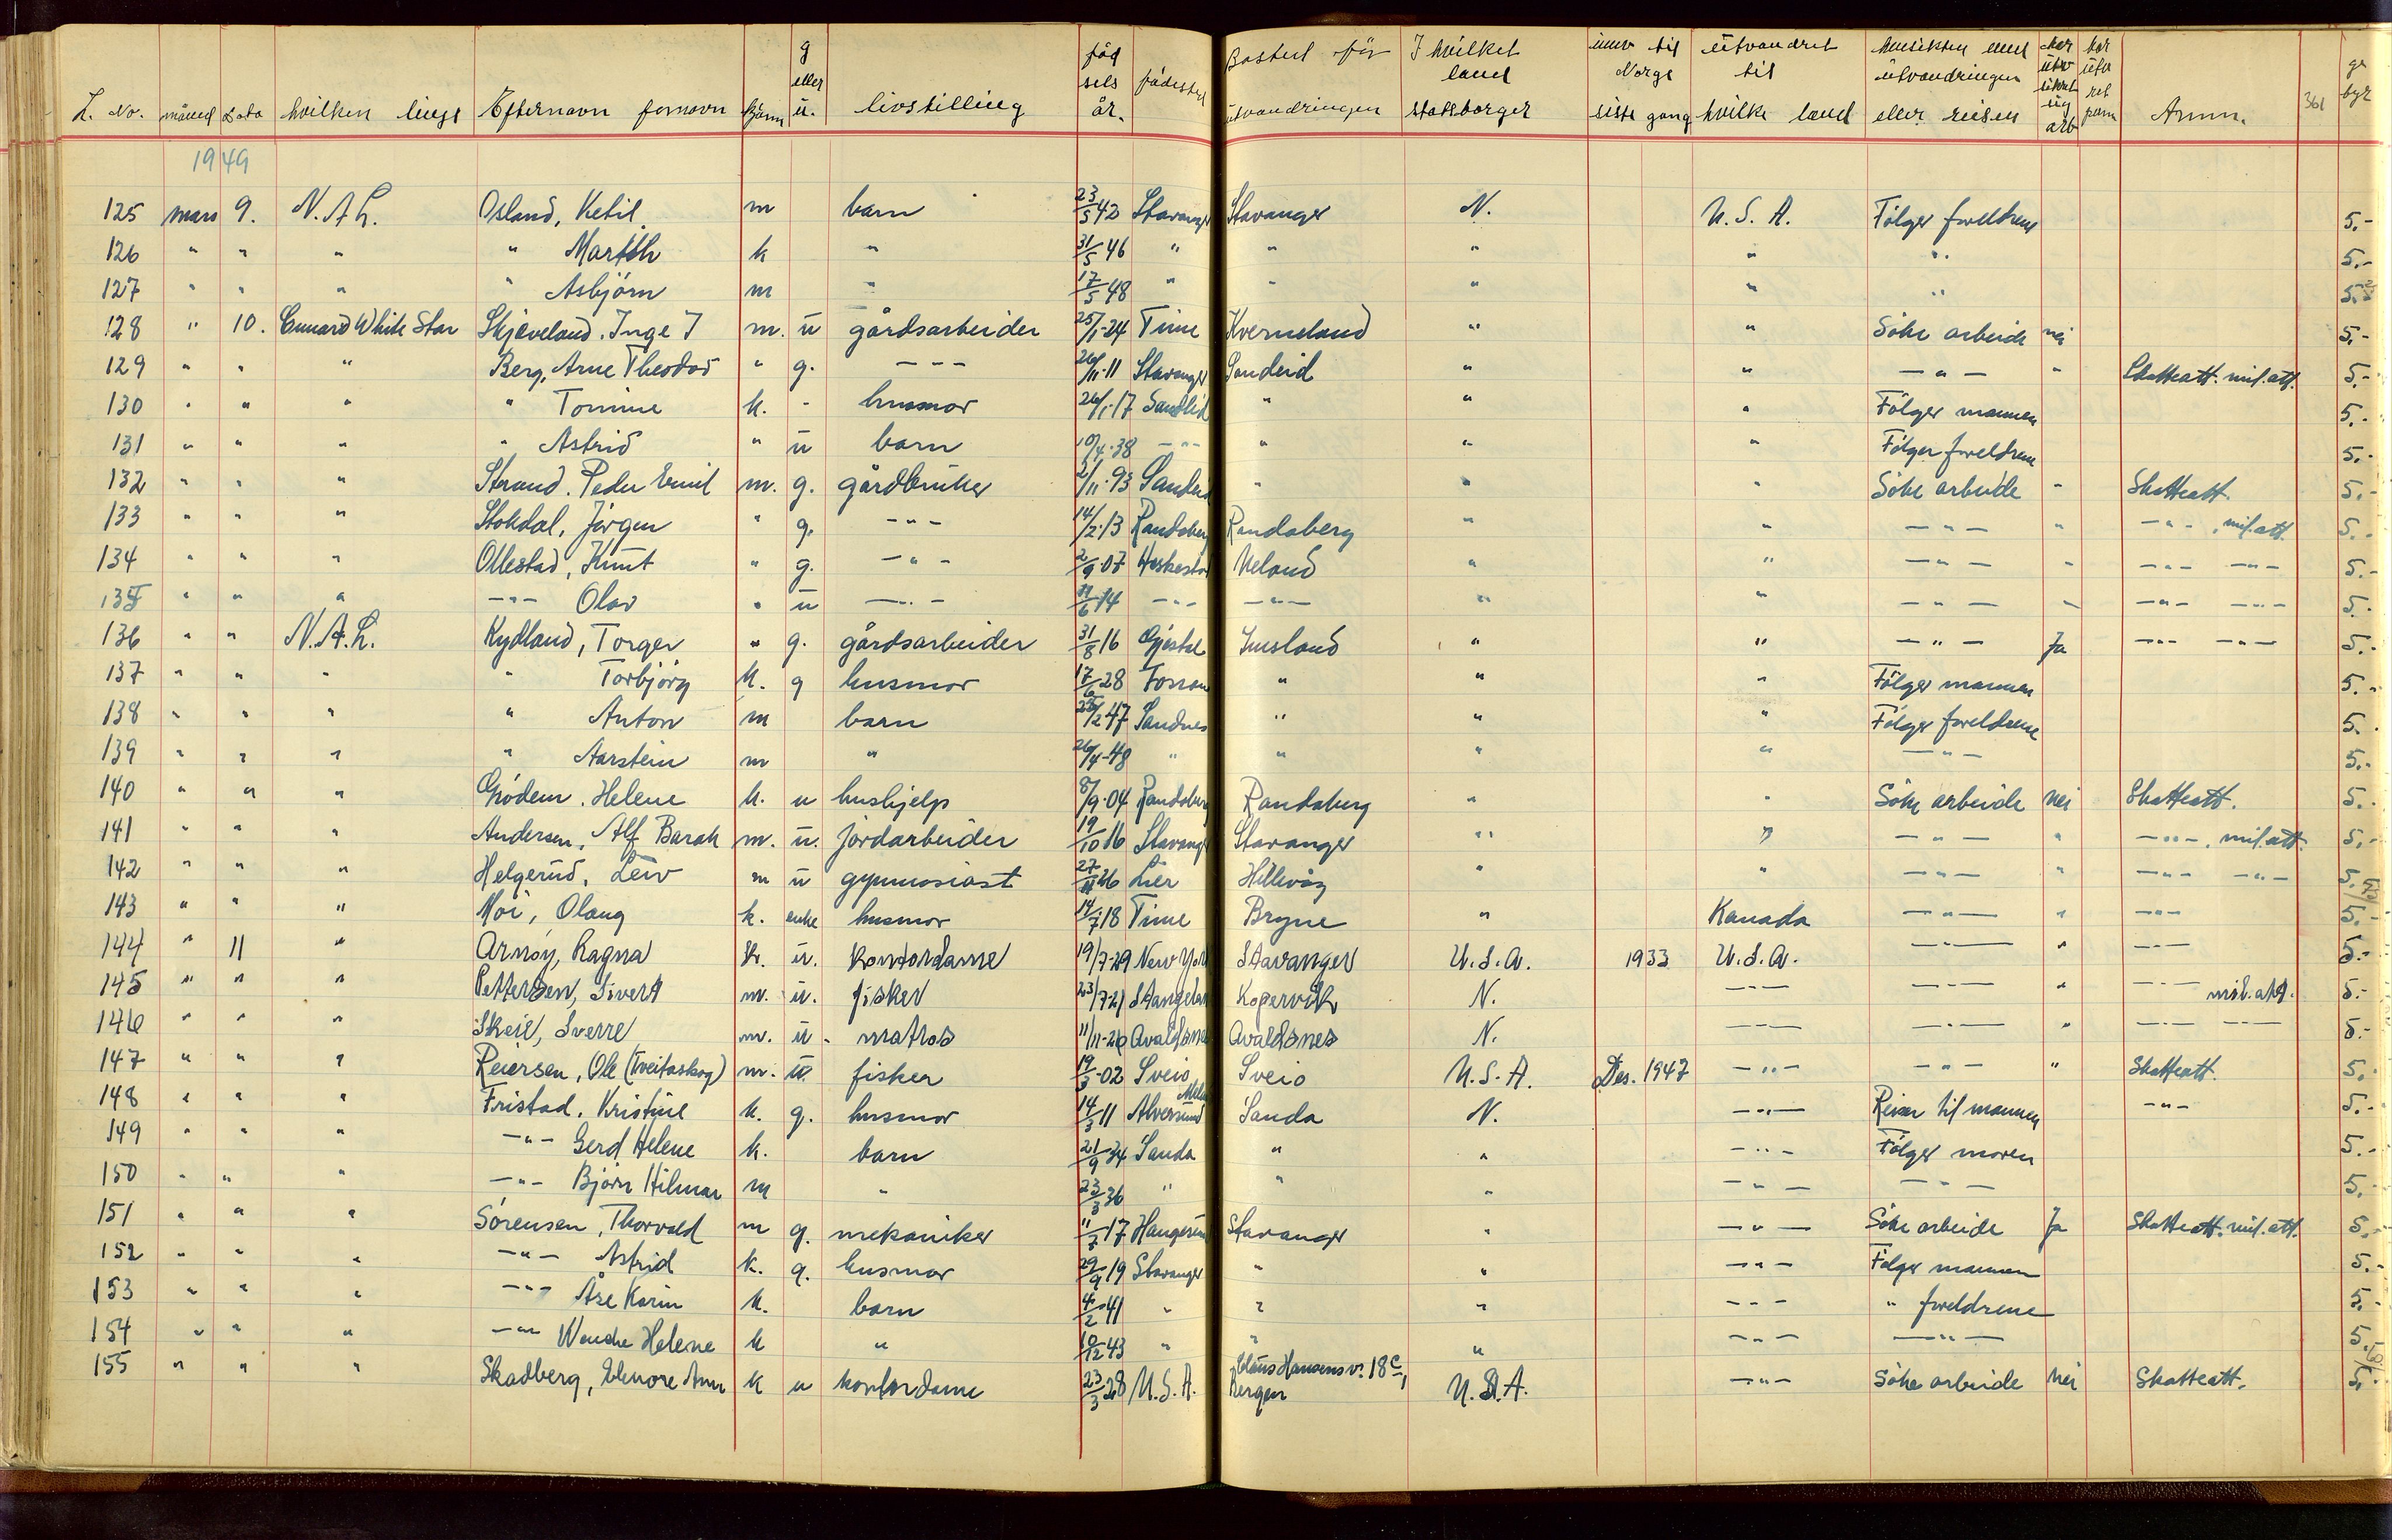 L. No. måned Dato hvilken linge Efternavn fornavn kjønn g eller u. livstilling fødselsår. fødested Bosted før utvandringen I hvilket land statsborger innv til Norge siste gang utvandret til hvilke land Hensikten med utvandringen eller reisen har utv sikret sig arb har utv ret perm Anm. 361 ge byr
1949
125 mars 9. N.A.L. Osland, Ketil m barn 23/5 42 Stavanger Stavanger N. U.S.A. Følger foreldrene 5.-
126 " " " " Marith k " 31/5 46 " " " " " 5.-
127 " " " " Asbjørn m " 17/5 48 " " " " " 5.-
128 " 10. Cunard White Star Skjæveland. Inge J m. u gårdsarbeider 25/1-24 Time Kverneland " " Søke arbeide nei 5.-
129 " " " Berg, Arne Theodor " g. - - - 26/11-11 Stavanger Sandeid " " - " - " Skatteatt. mil.att. 5.-
130 " " " " Tomine k. - husmor 26/1-17 Sandeid " " " Følger mannen 5.-
131 " " " " Astrid " u barn 10/4-38 - " - " " " Følger foreldrene 5.-
132 " " " Strand. Peder Emil m. g. gårdbruker 2/11-93 Sandeid " " " Søke arbeide " Skatteatt. 5.-
133 " " " Stokdal, Jørgen " g. - " - 14/2-13 Randaberg Randaberg " " - " - " - " - , mil.att. 5.-
134 " " " Ollestad, Knut " g. - " - 2/9-07 Heskestad Ueland " " - " - " - " - - " - 5.-
135 " " " - " - Olav " u - " - 11/6-14 - " - - " - " " - " - " - " - - " - 5.-
136 " " N.A.L. Kydland, Torger " g. gårdsarbeider 31/8 16 Gjestal Imsland " " - " - Ja - " - - " - 5.-
137 " " " " Torbjørg k. g husmor 17/6-28 Forsan " " " Følger mannen 5.-
138 " " " " Anton m barn 25/2 47 Sandnes " " " Følger foreldrene 5.-
139 " " " " Aarstein m " 26/4-48 " " " " - " - 5.-
140 " " " Grødem. Helene k. u hushjelp 8/9-04 Randaberg Randaberg " " Søke arbeide nei Skatteatt. 5.-
141 " " " Andersen, Alf Barak m. u. jordarbeider 19/10 16 Stavanger Stavanger " " - " - " - " - , mil.att. 5.-
142 " " " Helgerud, Leiv m u gymnasiast 27/11 26 Lier Hillevåg " " - " - " - " - - " - 5.-
143 " " " Moi, Olaug k. enke husmor 14/7 18 Time Bryne " Kanada - " - " - " - 5.-
144 " 11 " Arnøy, Ragna k. u. Kontordame 19/7-29 New York Stavanger U.S.A. 1933 U.S.A. - " - " - " - 5.-
145 " " " Pettersen, Sivert m. u. fisker 23/7-21 Stangeland Kopervik N. - " - - " - " - " - mil.att. 5.-
146 " " " Skeie, Sverre m. u. matros 11/11-26 Avaldsnes Avaldsnes N. - " - - " - " - " - - " - 5.-
147 " " " Reiersen, Ole (Tveitaskog) m. u. fisker 19/3-02 Sveio Sveio U.S.A. Des. 1947 - " - - " - " Skatteatt. 5.-
148 " " " Fristad. Kristine k. g. husmor 14/3 11 Alversund Sanda N. - " - Reiser til mannen - " - 5.-
149 " " " - " - Gerd Helene k. barn 21/9-34 Sanda " " - " - Følger moren 5.-
150 " " " - " - Bjørn Hilmar m " 23/3 36 " " " - " - - " - 5.-
151 " " " Sørensen, Thorvald m g. mekaniker 11/7 17 Haugesund Stavanger " - " - Søke arbeide Ja Skatteatt. mil.att. 5.-
152 " " " - " - Astrid k. g. husmor 29/9 19 Stavanger " " - " - Følger mannen 5.-
153 " " " - " - Åse Karin k. barn 4/2-41 " " " - " - " foreldrene 5.-
154 " " " - " - Wenche Helene k " 10/12 43 " " " - " - - " - 5.-
155 " " " Skadberg, Elenore Ann k u kontordame 23/3 28 U.S.A. Hansensv. 18c, Bergen U.S.A. - " - Søke arbeide nei Skatteatt. 5.-